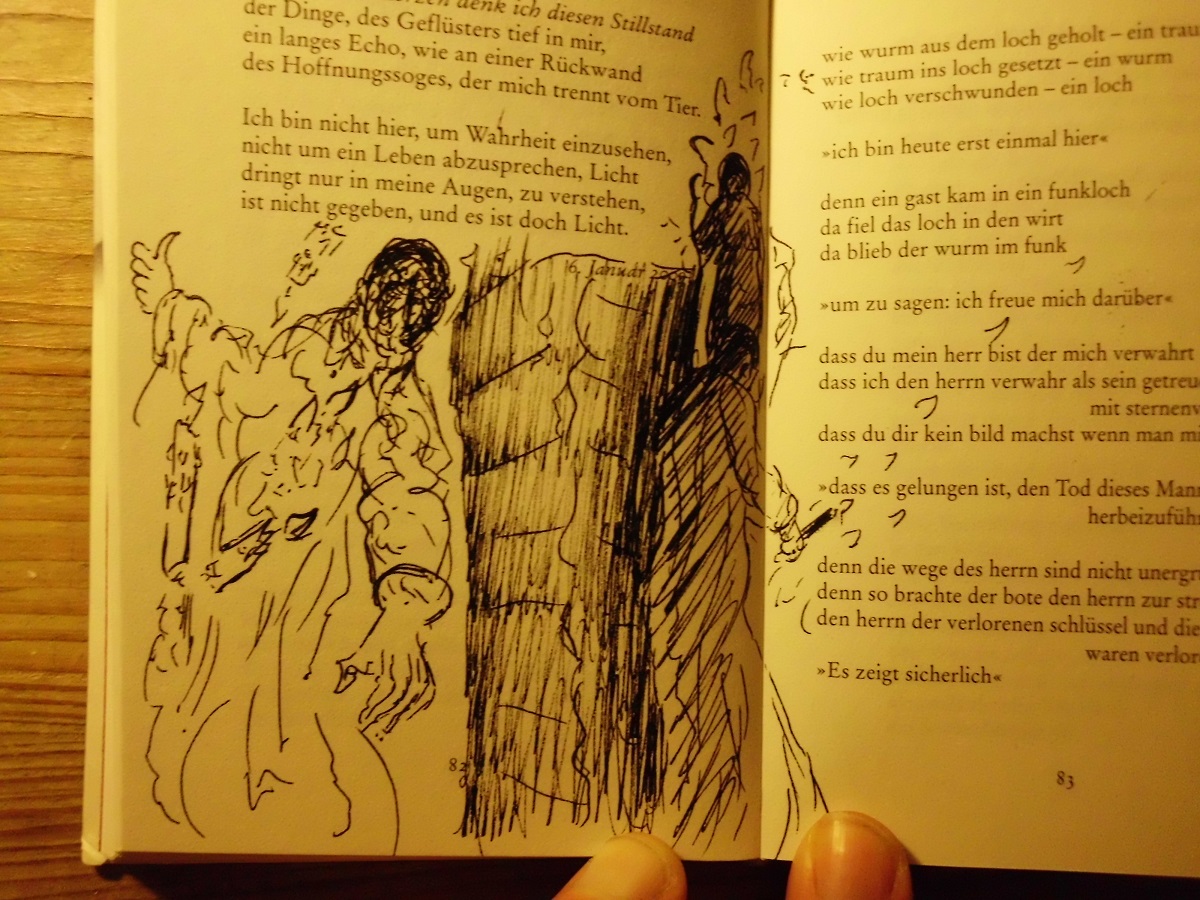 denk ich diesen Stillstand
der Dinge, des Geflüsters tief in mir,
ein langes Echo, wie an einer Rückwand
des Hoffnungssoges, der mich trennt vom Tier.
Ich bin nicht hier, um Wahrheit einzusehen,
nicht um ein Leben abzusprechen, Licht
dringt nur in meine Augen, zu verstehen,
ist nicht gegeben, und es ist doch Licht.
16. Januar
82
wie wurm aus dem loch geholt – ein trau
wie traum ins loch gesetzt – ein wurm
wie loch verschwunden – ein loch
»ich bin heute erst einmal hier«
denn ein gast kam in ein funkloch
da fiel das loch in den wirt
da blieb der wurm im funk
»um zu sagen: ich freue mich darüber«
dass du mein herr bist der mich verwahrt
dass ich den herrn verwahr als sein getreu
mit sternenv
dass du dir kein bild machst wenn man mi
»dass es gelungen ist, den Tod dieses Mann
herbeizufüh
denn die wege des herrn sind nicht unergr
denn so brachte der bote den herrn zur str
den herrn der verlorenen schlüssel und die
waren verlor
»Es zeigt sicherlich«
83